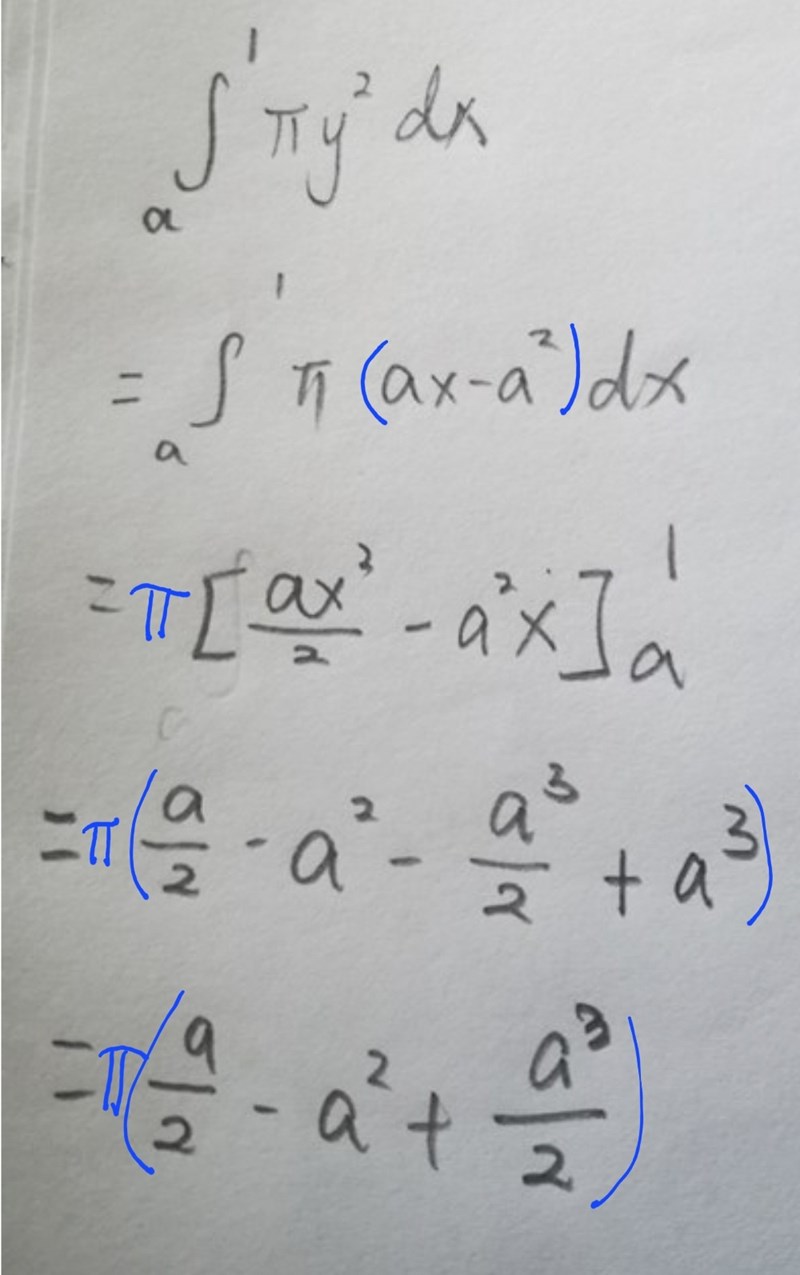 ∫ₐ¹ πy² dx
= ∫ₐ¹ π(ax-a²)dx
= π[ax²/2 - a²x]ₐ¹
= π(a/2 - a² - a³/2 + a³)
= π(a/2 - a² + a³/2)